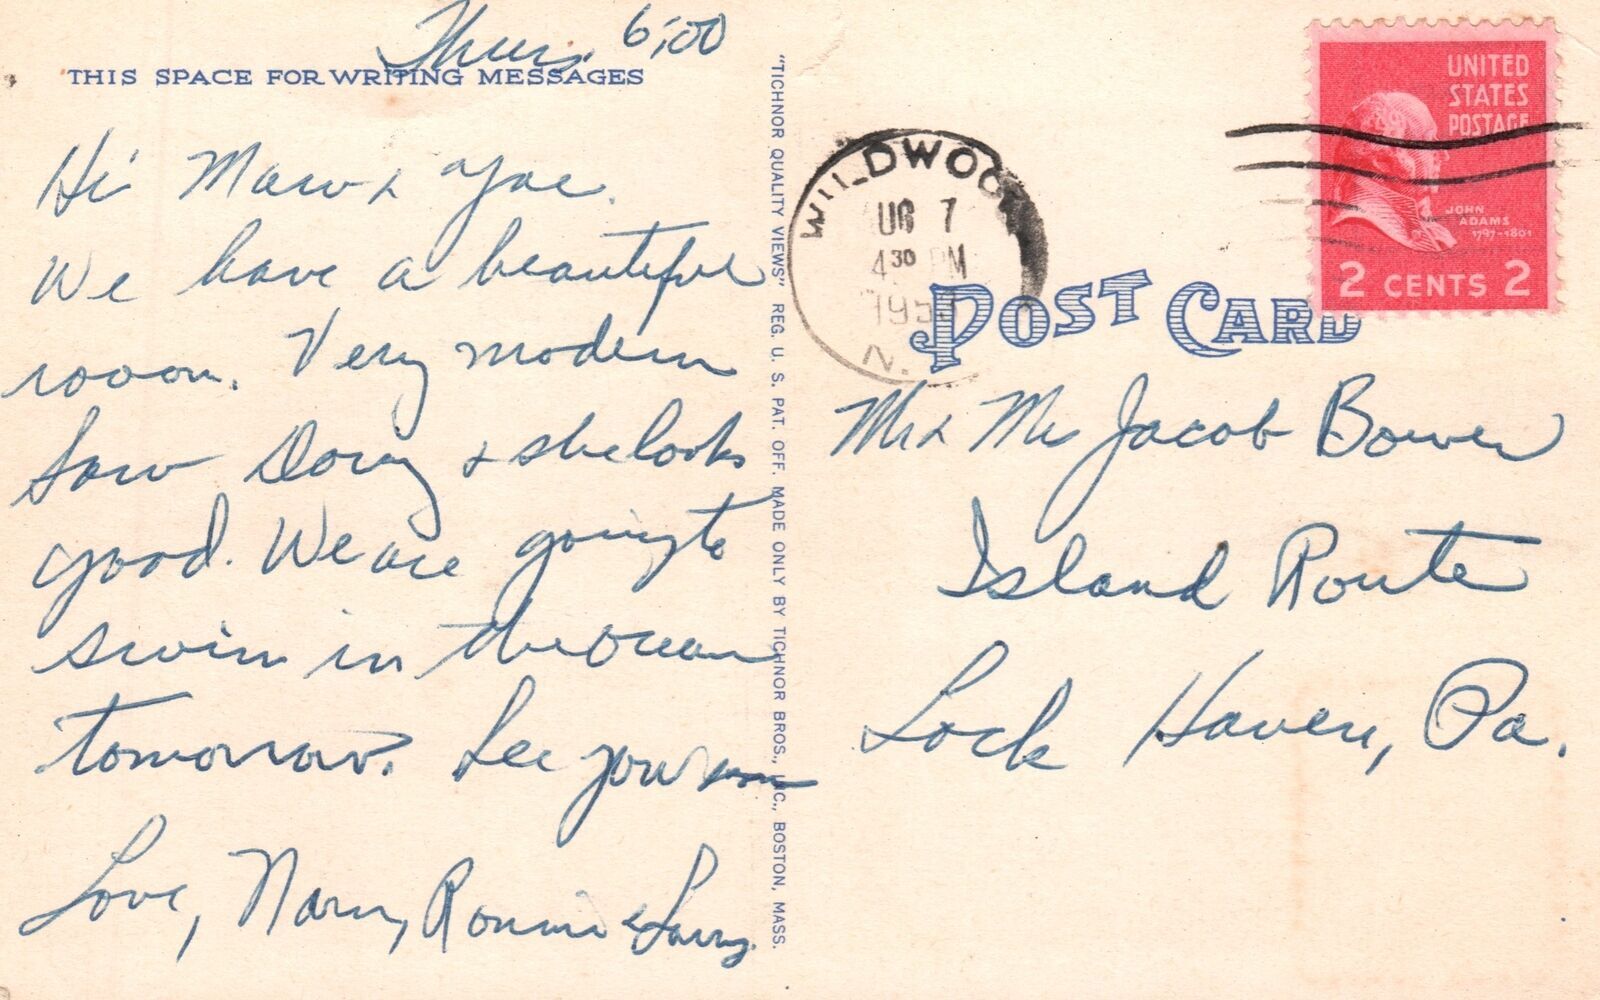 Thurs. 6:00
THIS SPACE FOR WRITING MESSAGES
Hi Maw &
We have a beautiful
rooom. Very modern
Saw & she looks
good. We are going to
swim in the ocean
tomorrow. See you soon
Love, Ronnie & Larry.
"TICHNOR QUALITY VIEWS" REG. U. S. PAT. OFF. MADE ONLY BY TICHNOR BROS., INC., BOSTON, MASS.
WILDWOOD
AUG 7
4 30 PM
N.
UNITED
STATES
POSTAGE
JOHN
ADAMS
1797-1801
2 CENTS 2
POST CARD
Mr & Mrs Jacob Bower
Island Route
Lock Haven, Pa.